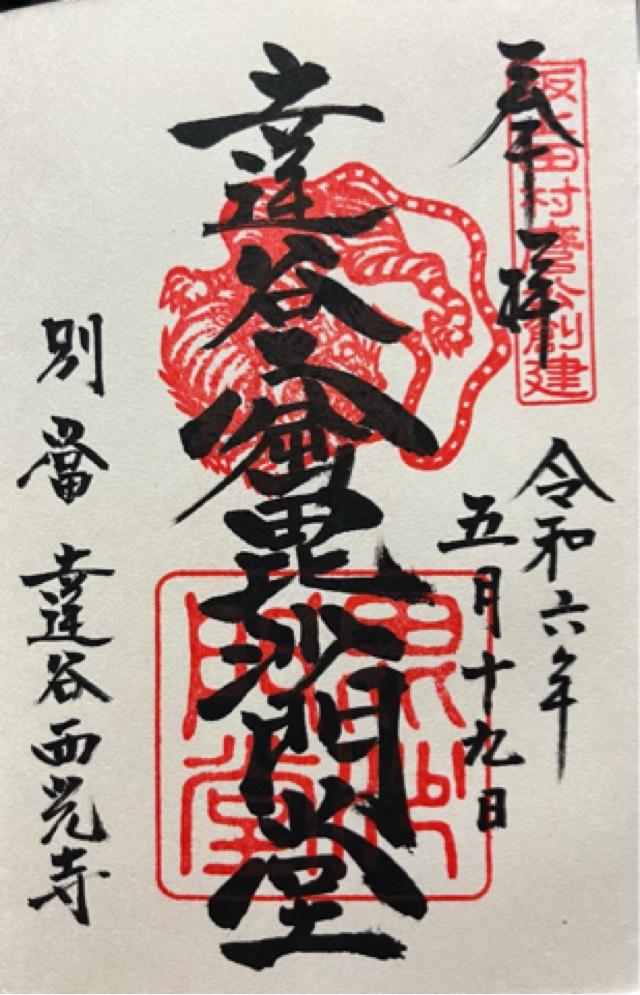 奉拝
坂上田村麿公創建
令和六年
五月十九日
達谷窟毘沙門堂
毘沙門堂
別當 達谷西光寺